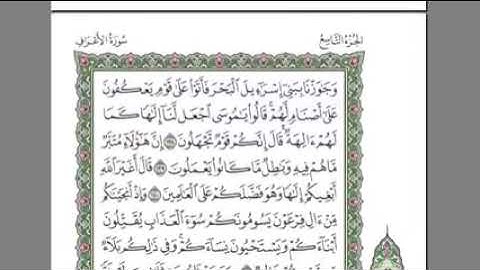 الجزء التاسع
سورة الأعراف
وَجَٰوَزْنَا بِبَنِىٓ إِسْرَٰٓءِيلَ ٱلْبَحْرَ فَأَتَوْا۟ عَلَىٰ قَوْمٍ يَعْكُفُونَ
عَلَىٰٓ أَصْنَامٍ لَّهُمْ ۚ قَالُوا۟ يَٰمُوسَى ٱجْعَل لَّنَآ إِلَٰهًا كَمَا
لَهُمْ ءَالِهَةٌ ۚ قَالَ إِنَّكُمْ قَوْمٌ تَجْهَلُونَ ١٣٨ إِنَّ هَٰٓؤُلَآءِ مُتَبَّرٌ
مَّا هُمْ فِيهِ وَبَٰطِلٌ مَّا كَانُوا۟ يَعْمَلُونَ ١٣٩ قَالَ أَغَيْرَ ٱللَّهِ
أَبْغِيكُمْ إِلَٰهًا وَهُوَ فَضَّلَكُمْ عَلَى ٱلْعَٰلَمِينَ ١٤٠ وَإِذْ أَنجَيْنَٰكُم
مِّنْ ءَالِ فِرْعَوْنَ يَسُومُونَكُمْ سُوٓءَ ٱلْعَذَابِ يُقَتِّلُونَ
أَبْنَآءَكُمْ وَيَسْتَحْيُونَ نِسَآءَكُمْ ۚ وَفِى ذَٰلِكُم بَلَآءٌ